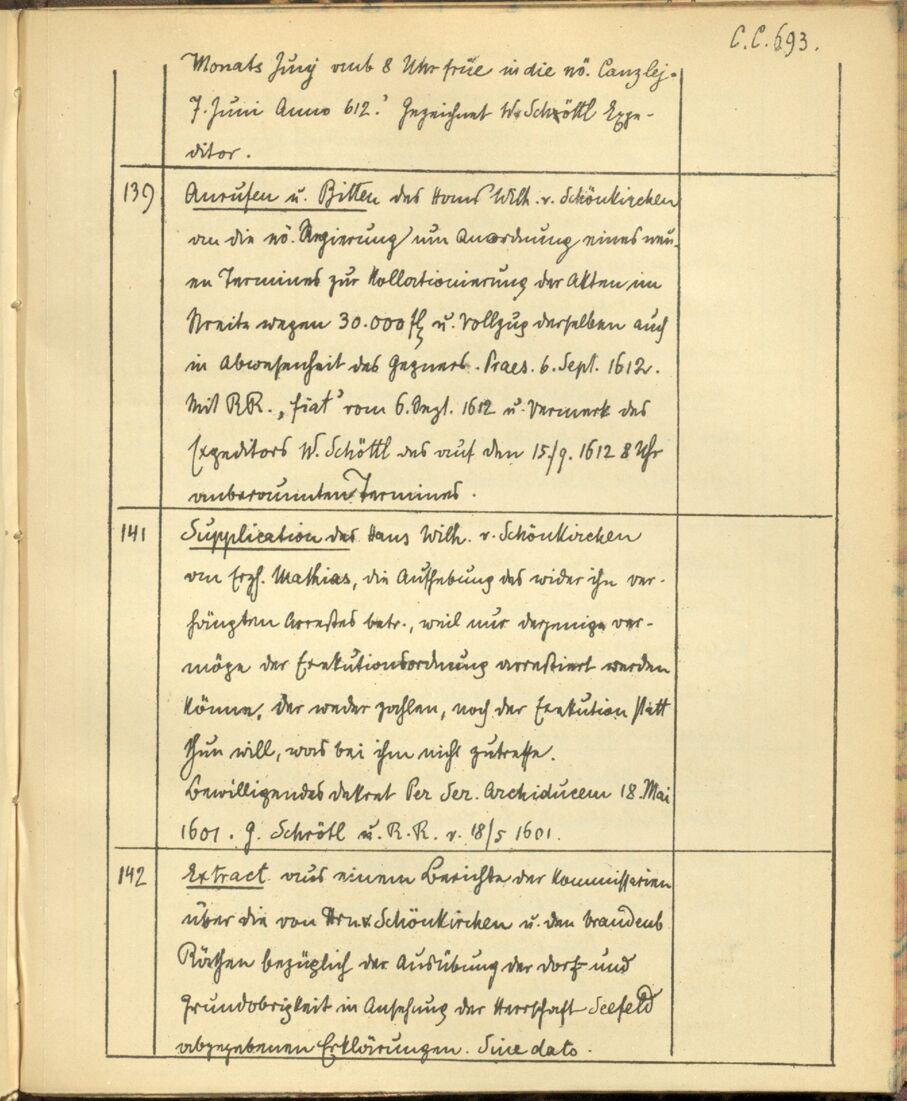 C.C. 693.
Monats Junij umb 8 Uhr früe in die nö. Canzlej.
7. Juni Anno 612.' Gezeichnet W. Schöttl Expe-
ditor.
139 Anrufen u. Bitten des Hans Wilh. v. Schönkirchen
an die nö. Regierung um Anordnung eines neu-
en Termines zur Kollationierung der Akten im
Streite wegen 30.000 fl u. Vollzug derselben auch
in Abwesenheit des Gegners. Praes. 6. Sept. 1612.
Mit R.R. „fiat" vom 6. Sept. 1612 u. Vermerk des
Expeditors W. Schöttl des auf den 15./9. 1612 8 Uhr
anberaumten Termines.
141 Supplication des Hans Wilh. v. Schönkirchen
an Erzh. Mathias, die Aufhebung des wider ihn ver-
hängten Arrestes betr., weil nur derjenige ver-
möge der Exekutionsordnung arrestiert werden
könne, der weder zahlen, noch der Exekution statt
thun will, was bei ihm nicht zutreffe.
Bewilligendes Dekret Per Ser. Archiducem 18. Mai
1601. G. Schrötl u. R.R. v. 18/5 1601.
142 Extract aus einem Berichte der Kommissarien
über die von Hrn v Schönkirchen u. den brandenb
Räthen bezüglich der Ausübung der Dorf- und
Grundobrigkeit in Ansehung der Herrschaft Seefeld
abgegebenen Erklärungen. Sine dato.